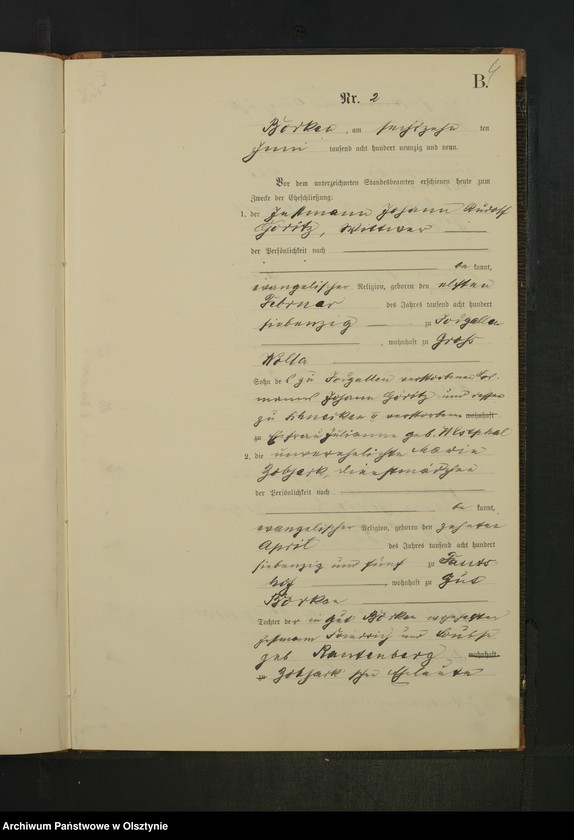 B. 4
Nr. 2
Borken, am sechszehn ten
Juni tausend acht hundert neunzig und neun.
Vor dem unterzeichneten Standesbeamten erschienen heute zum
Zwecke der Eheschließung:
1. der Instmann Johann Rudolf
Goritz, Wittwer
der Persönlichkeit nach
be kannt,
evangelischer Religion, geboren den elften
Februar des Jahres tausend acht hundert
siebenzig zu
, wohnhaft zu Groß
Wolla
Sohn de s zu verstorbenen
manns Johann Goritz und dessen
zu verstorbenen wohnhaft
zu Ehefrau Julianne geb. Westphal
2. die unverehelichte Marie
Dienstmädchen
der Persönlichkeit nach
be kannt,
evangelischer Religion, geboren den zehnten
April des Jahres tausend acht hundert
siebenzig und fünf zu
hof, wohnhaft zu Gut
Borken
Tochter der in Gut Borken
Instmann Friedrich und Louise
geb Rautenberg wohnhaft
zu schen Eheleute
Archiwum Państwowe w Olsztynie